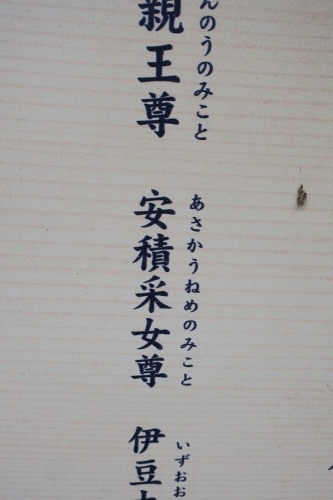 親王尊
んのうのみこと
安積采女尊
あさかうねめのみこと
伊豆
いずおお